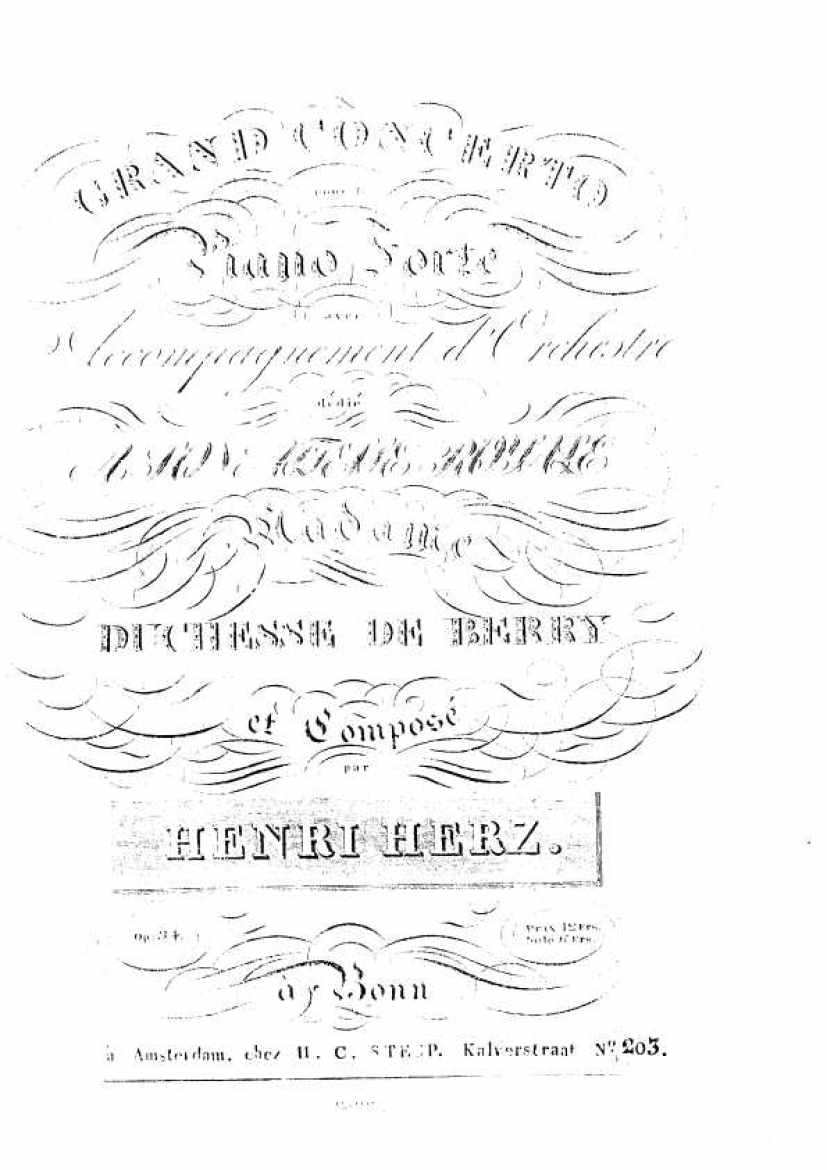 GRAND CONCERTO
pour le
Piano Forte
avec
Accompagnement d'Orchestre
dédié
A SON ALTESSE ROYALE
Madame
DUCHESSE DE BERRY
et Composé
par
HENRI HERZ.
Op. 34.
Prix 12 Frs.
Solo 6 Frs.
à Bonn
à Amsterdam, chez H. C. Kalverstraat Nº 203.